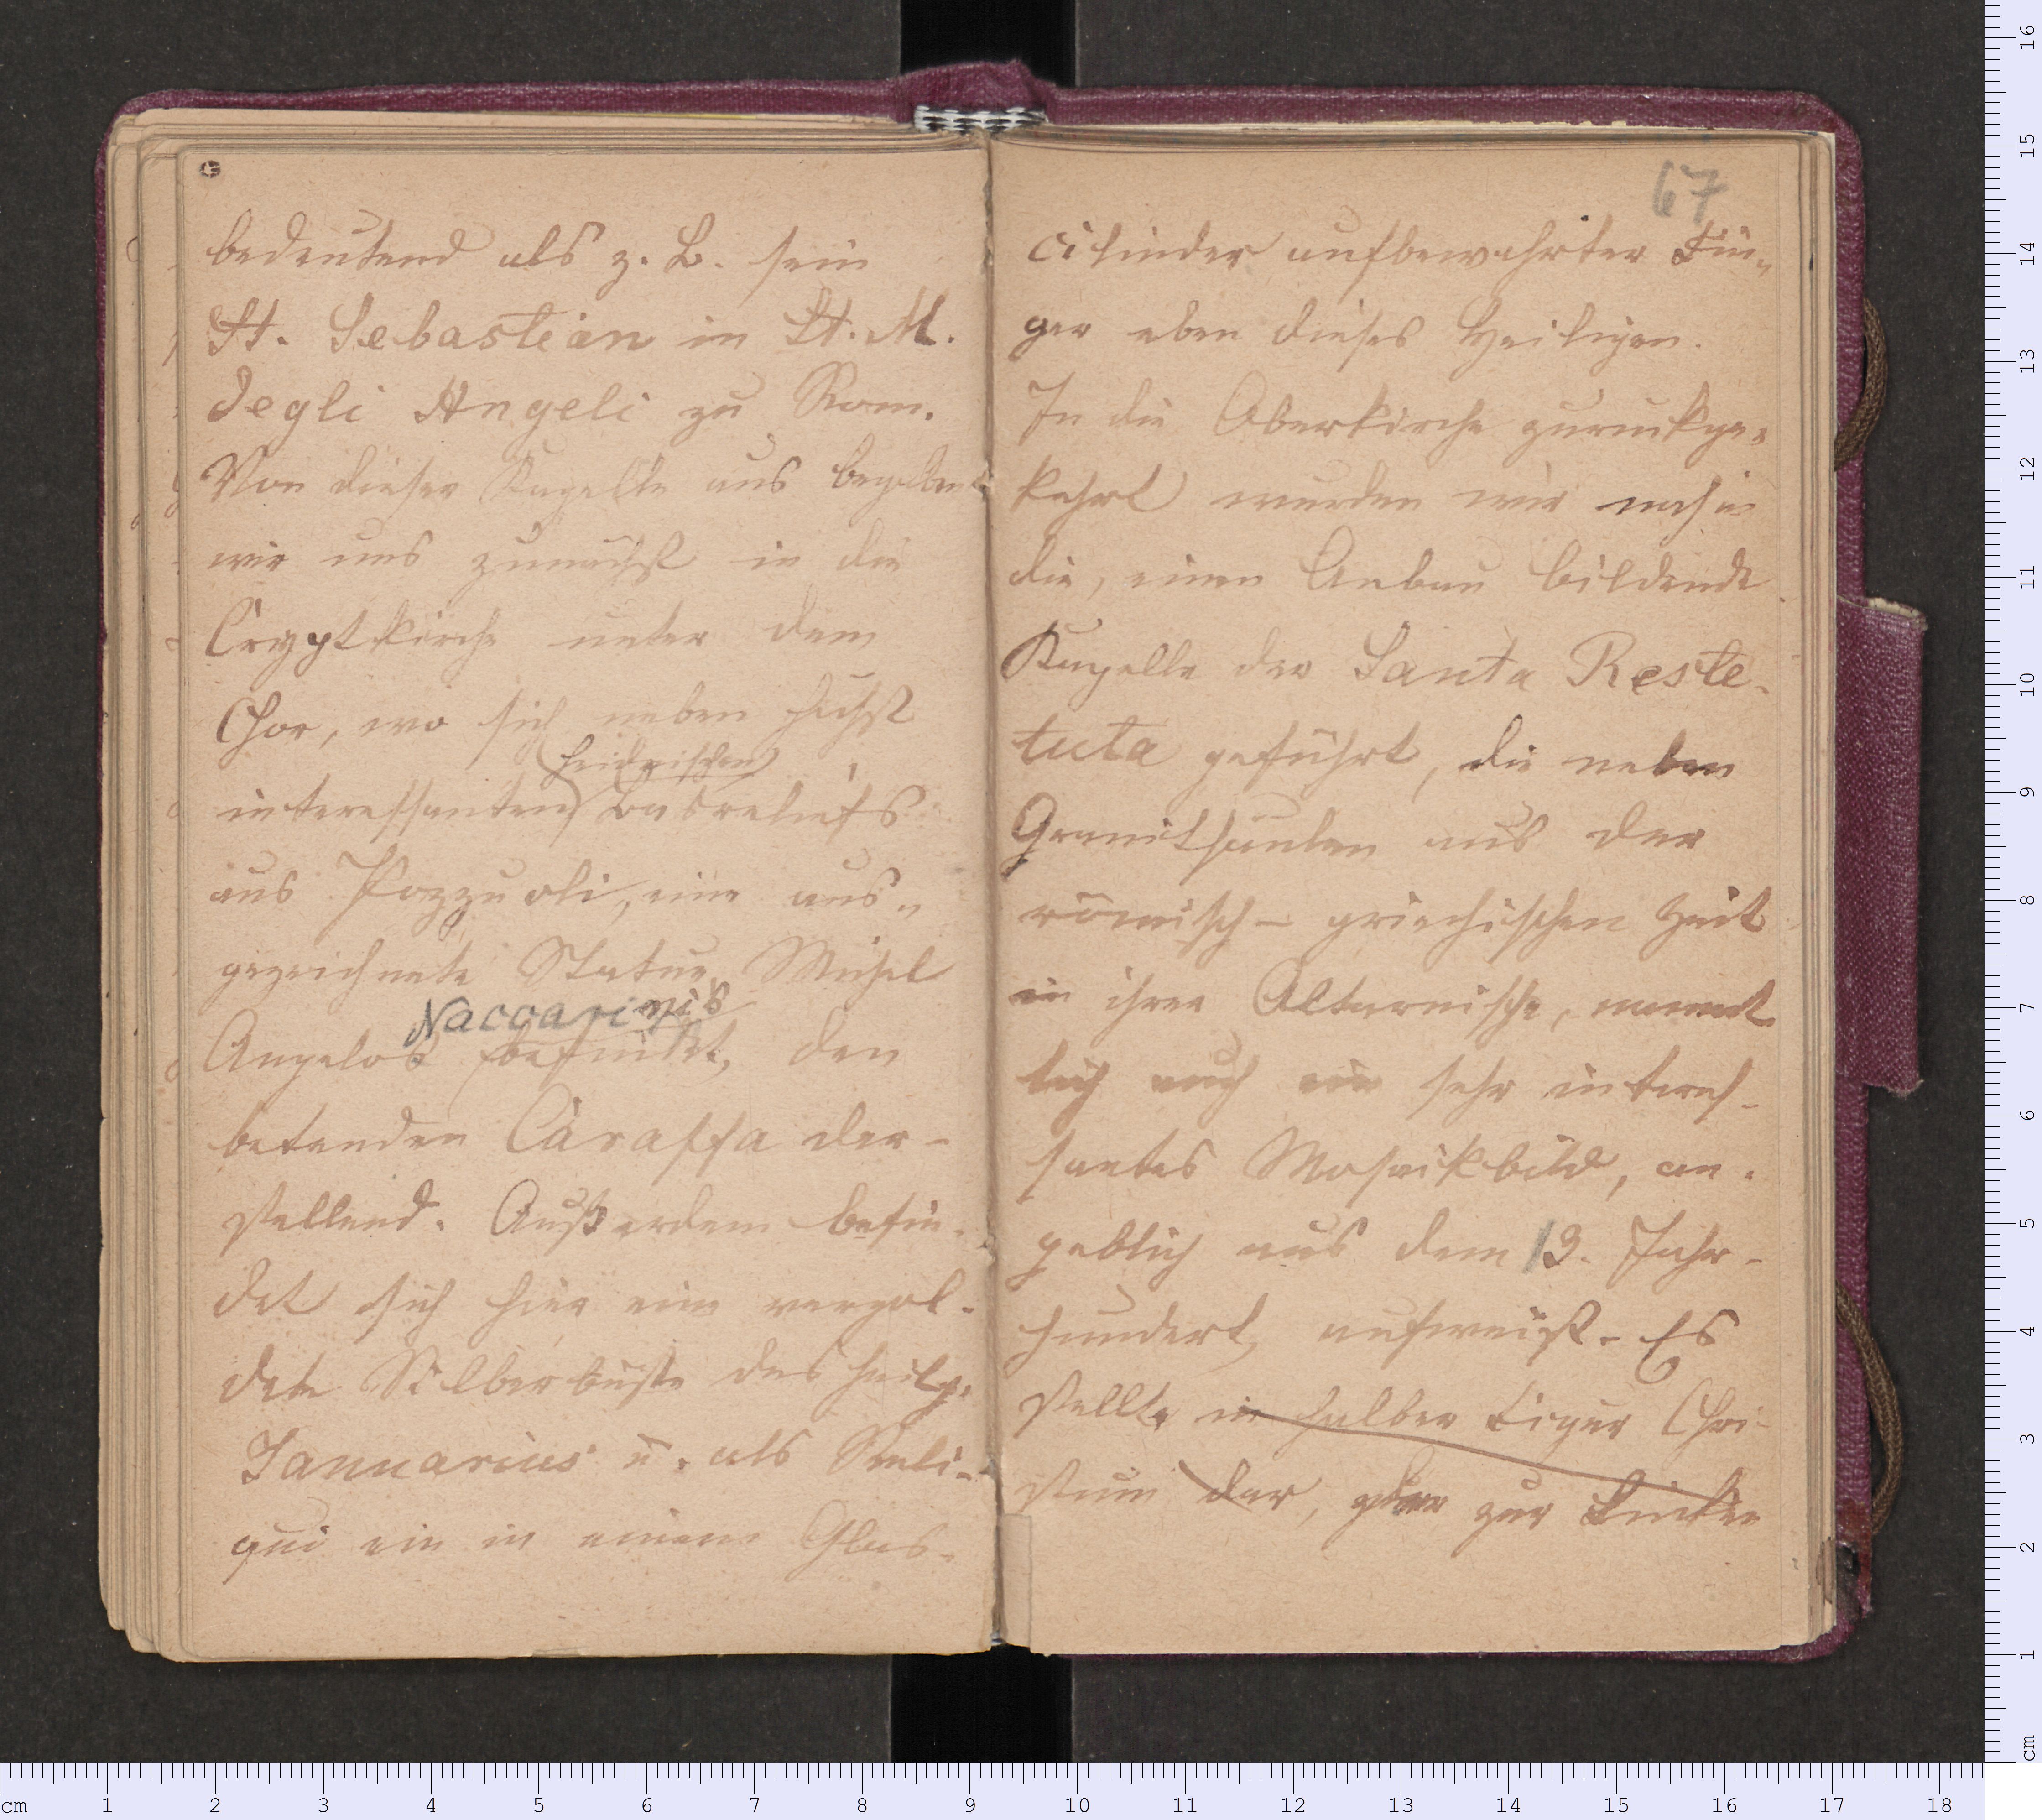 bedeutend als z. B. sein
St. Sebastian in St. M.
degli Angeli zu Rom.
Von dieser Kapelle aus begeben
wir uns zunächst in die
Cryptkirche unter dem
Chor, wo sich neben höchst
heidnischen
interessanten Basreliefs
aus Pozzuoli, eine aus„
gezeichnete Statue, Michel
Naccarinis
Angelos befindet, den
betenden Caraffa dar-
stellend. Außerdem befin-
det sich hier eine vergol-
dete Silberbüste des heilg.
Januarius u. als Reli-
qui ein in einem Glas-
67
cilinder aufbewahrter Fin„
ger eben dieses Heiligen.
In die Oberkirche zurückge„
kehrt wurden wir noch in
die, einen Anbau bildende
Kapelle der Santa Reste-
tuta geführt, die neben
Granitsäulen aus der
römisch-griechischen Zeit
in ihrer Altarnische, nament
lich auch ein sehr interes-
santes Mosaikbild, an-
geblich aus dem 13. Jahr-
hundert, aufweist. Es
stellte in halber Figur Chri-
stum dar, zur Linken